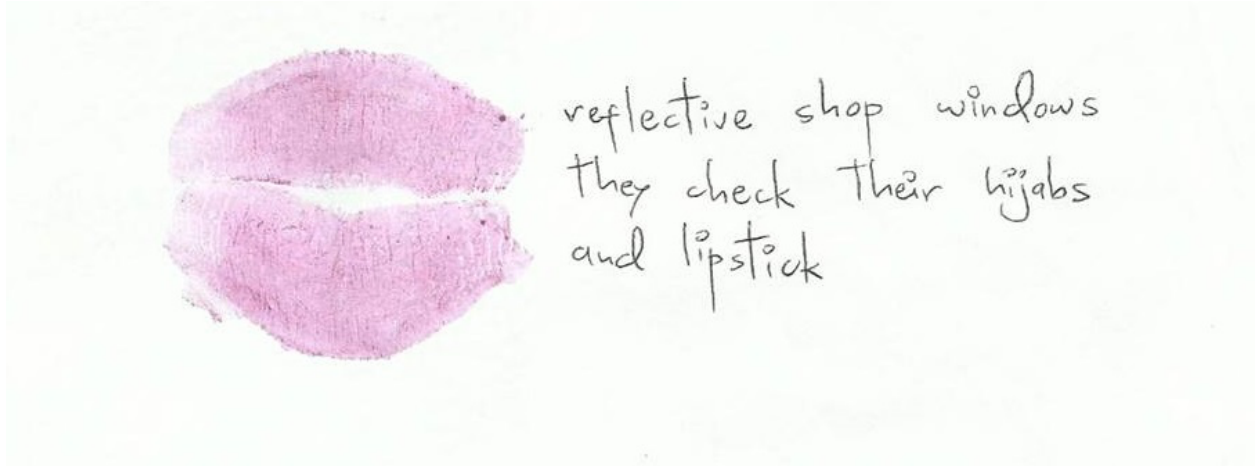 reflective shop windows
they check their hijabs
and lipstick